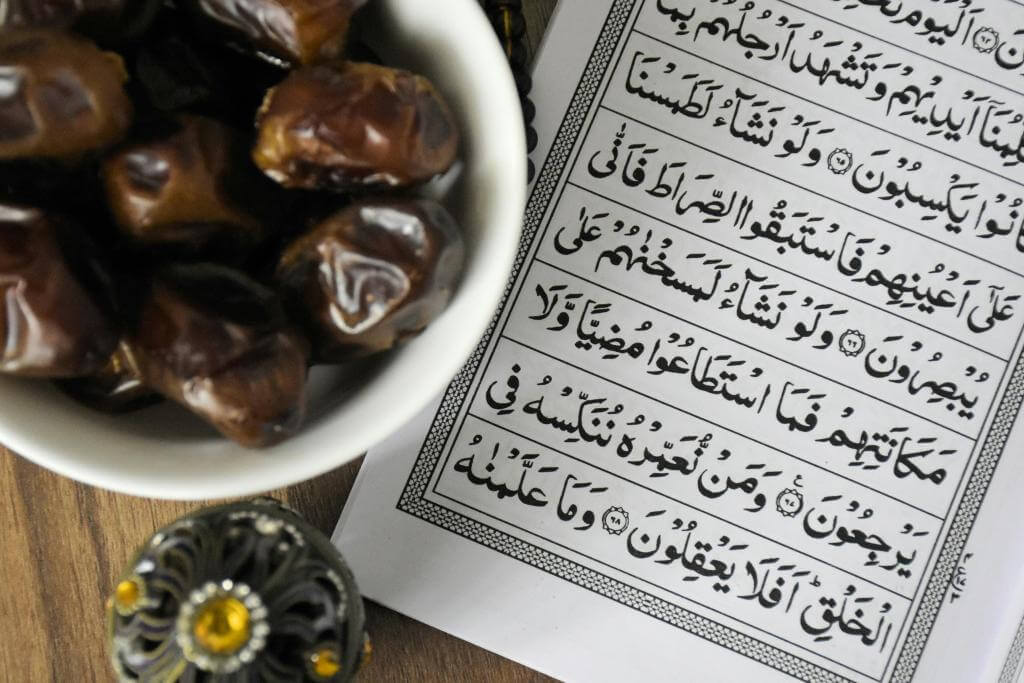 اَلْيَوْمَ
ـلِّمُنَآ اَيْدِيْهِمْ وَتَشْهَدُ اَرْجُلُهُمْ بِمَا
كَانُوْا يَكْسِبُوْنَ ﴿٦٥﴾ وَلَوْ نَشَآءُ لَطَمَسْنَا
عَلٰٓى اَعْيُنِهِمْ فَاسْتَبَقُوا الصِّرَاطَ فَاَنّٰى
يُبْصِرُوْنَ ﴿٦٦﴾ وَلَوْ نَشَآءُ لَمَسَخْنٰهُمْ عَلٰى
مَكَانَتِهِمْ فَمَا اسْتَطَاعُوْا مُضِيًّا وَّلَا
يَرْجِعُوْنَ ﴿٦٧﴾ وَمَنْ نُّعَمِّرْهُ نُنَكِّسْهُ فِى
الْخَلْقِ ؕ اَفَلَا يَعْقِلُوْنَ ﴿٦٨﴾ وَمَا عَلَّمْنٰهُ